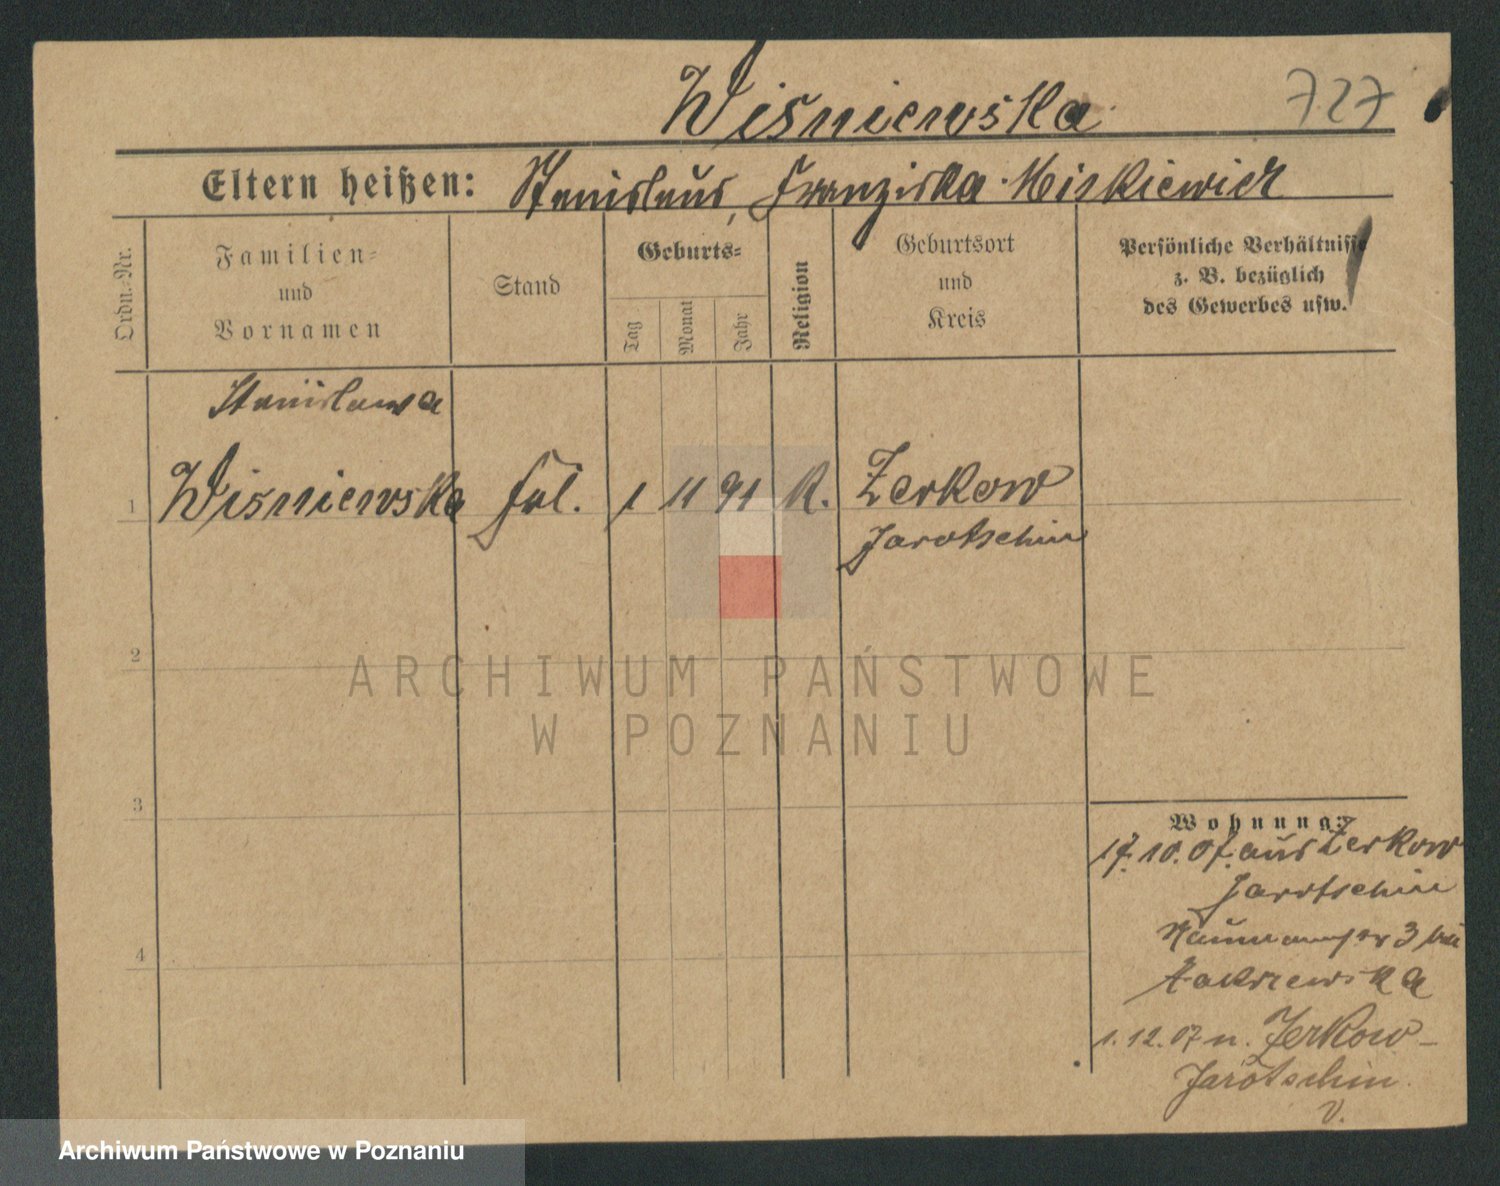 Wiśniewska
727
Eltern heißen: Stanislaus, Franziska Miskiewicz
Ordn.-Nr.
Familien-
und
Vornamen
Stand
Geburts-
Tag
Monat
Jahr
Religion
Geburtsort
und
Kreis
Persönliche Verhältnisse
z. B. bezüglich
des Gewerbes usw.
Stanislawa
1 Wiśniewska Frl. 1 11 91 K. Zerkow
Jarotschin
2
ARCHIWUM PAŃSTWOWE
W POZNANIU
3
Wohnung:
17. 10. 07. aus Zerkow
Jarotschin
3 bei
4
Zakrzewska
1. 12. 07 n. Zerkow-
Jarotschin.
V.
Archiwum Państwowe w Poznaniu